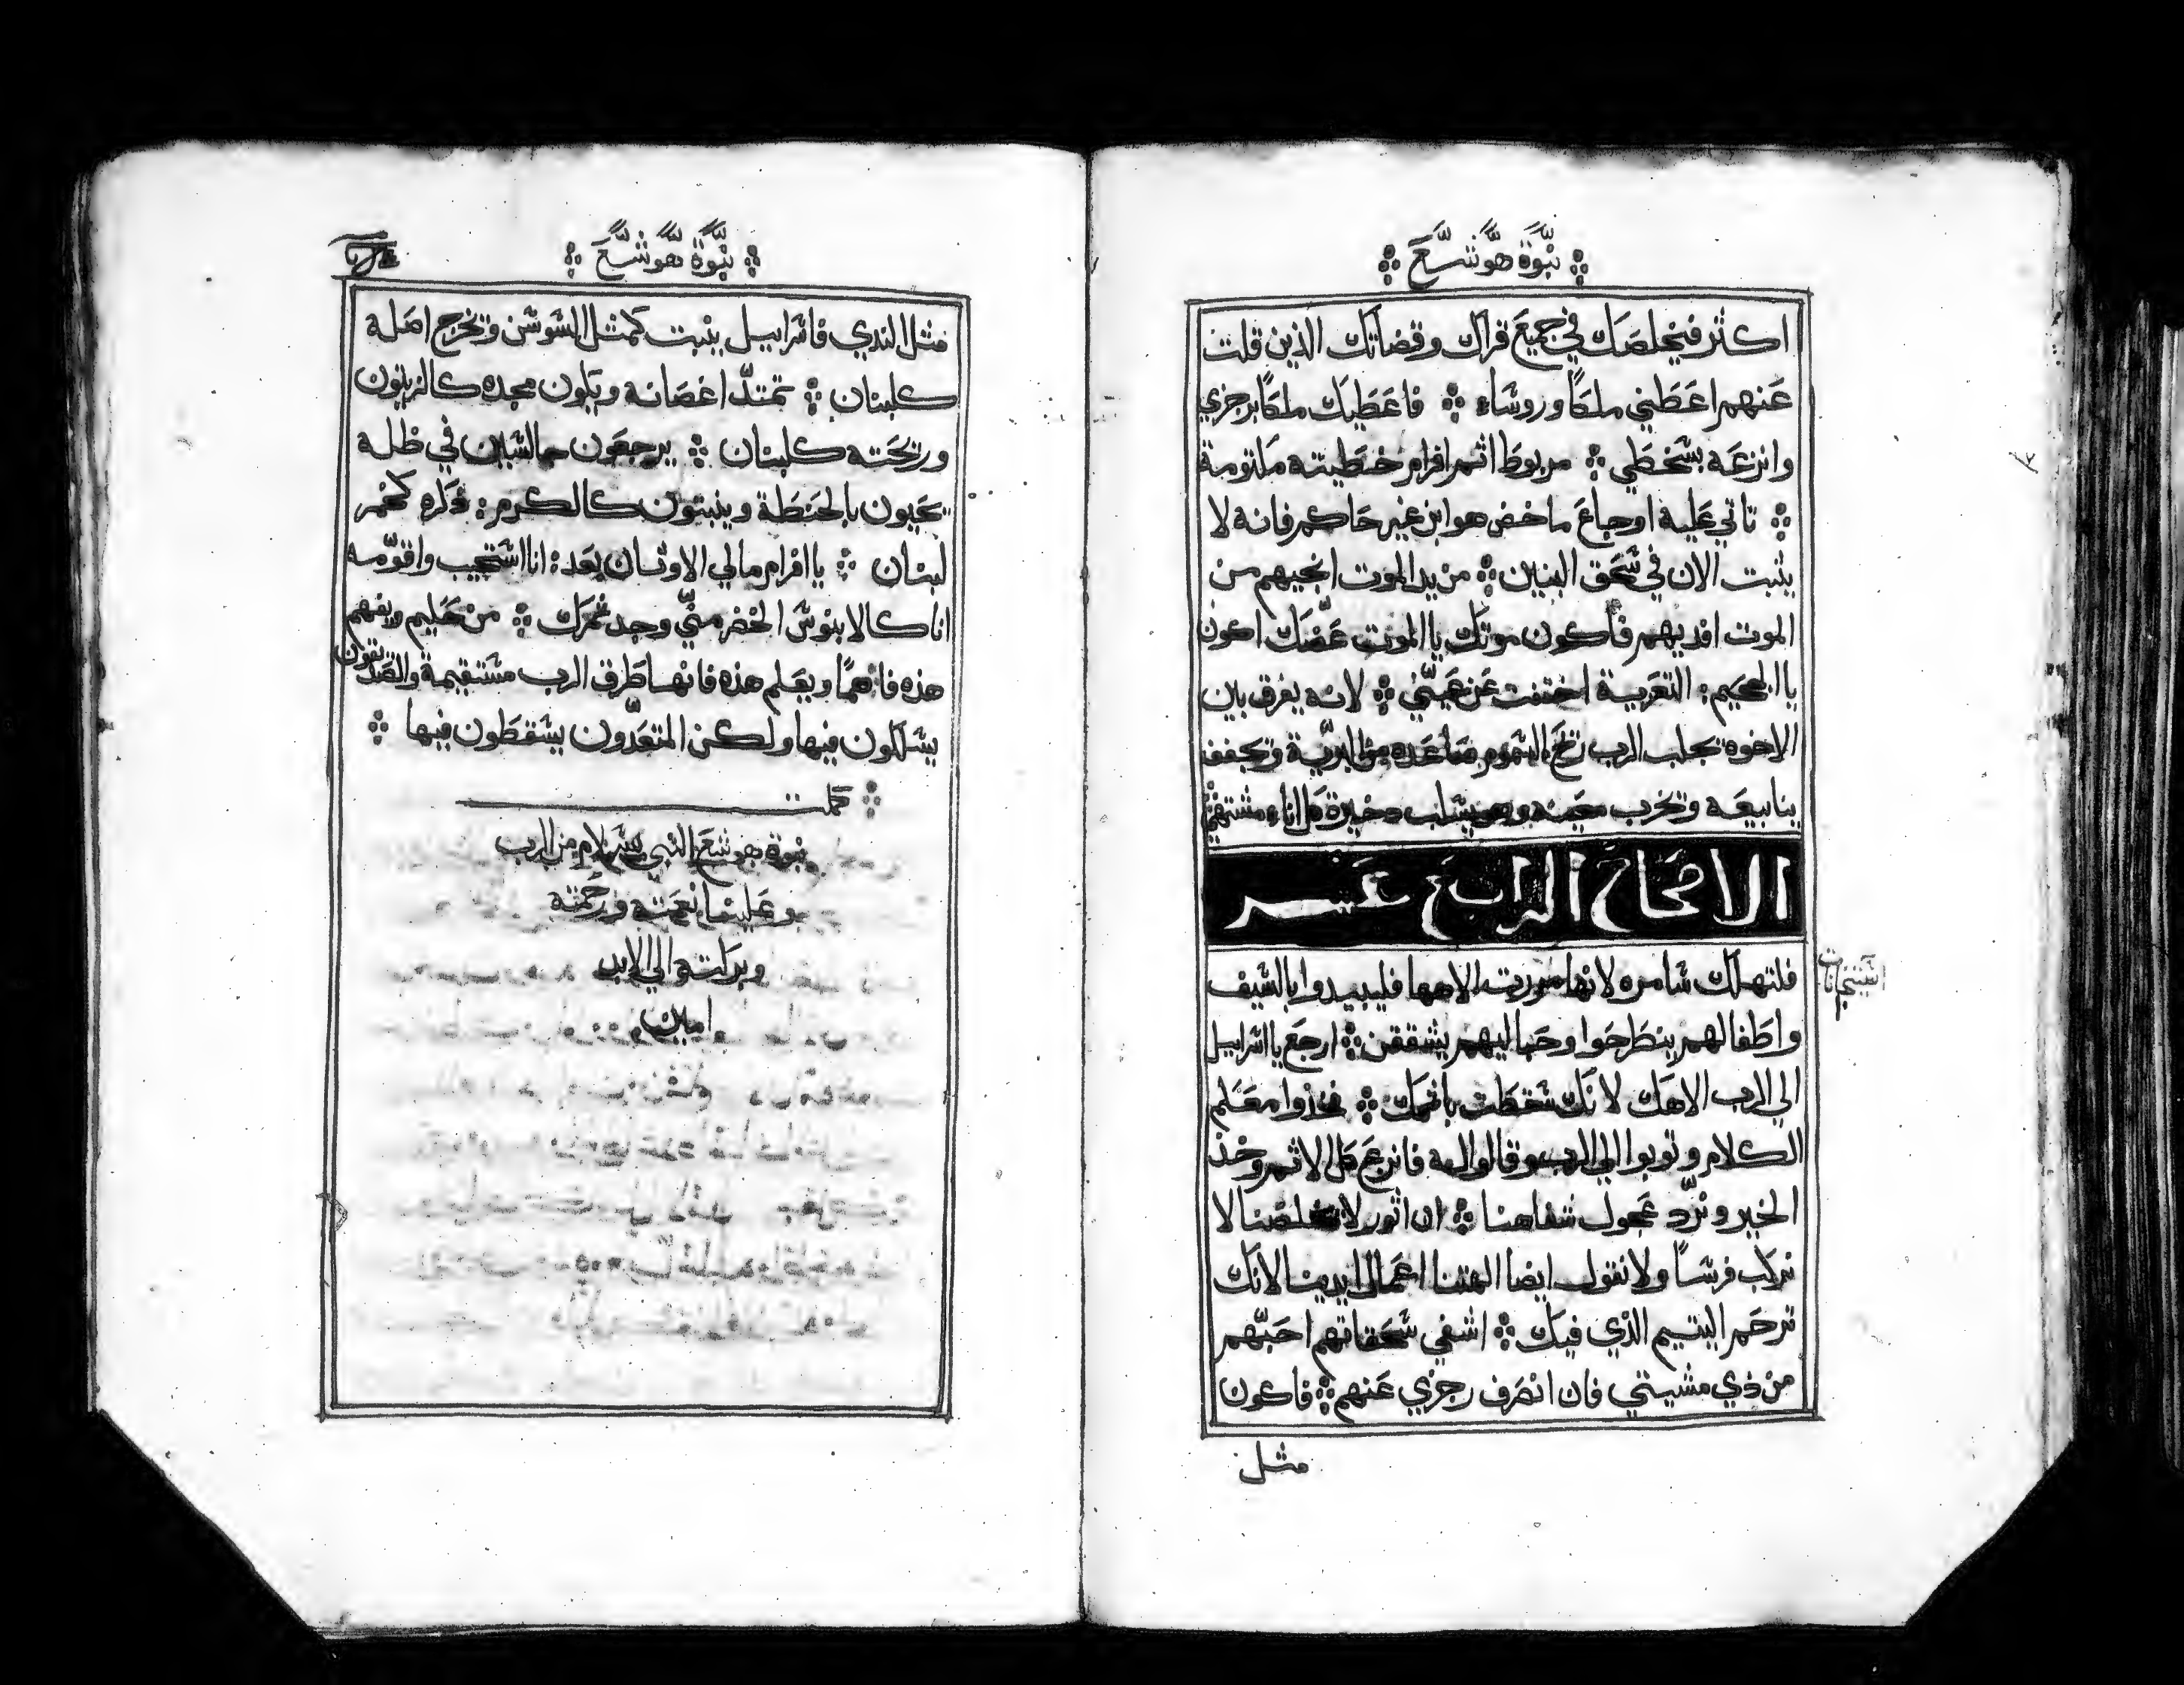 نبوة هوشع
اكثر فيخلصك في جميع قراك وقضاتك الذين قلت
عنهم اعطني ملكًا وروساء ⁘ فاعطيك ملكًا برجزي
وانزعه بسخطي ⁘ مربوط اثم افرام خطيته مكتومة
⁘ تاتي عليه اوجاع ماخض هو ابن غير حاكم فانه لا
يثبت الان في سحق البنين ⁘ من يد الموت انجيهم من
الموت افديهم فأكون موتك يا الموت عضّك اكون
يا الجحيم: التعزية اختفت عن عينيّ ⁘ لانه يفرق بين
الاخوة يجلب الرب ريح السموم صاعده من البريّة وتجفف
ينابيعه وتخرب معينه وهو يسلب دخيرة كل اناء مشتهى
الاصحاح الرابع عشر
فلتهلك سامره لانها مررت الاهها فليبيدوا بالسيف
واطفالهم ينطرحوا وحباليهم يشققن ⁘ ارجع يا اسراييل
الي الرب الاهك لانك سقطت باثمك ⁘ خذوا معكم
الكلام وتوبوا الي الرب وقالوا له فانزع كل الاثم وخذ
الخير ونردّ عجول شفاهنا ⁘ ان اثور لا تخلصنا لا
نركب فرسًا ولا نقول ايضا الهتنا اعمال ايدينا لانك
ترحم اليتيم الذي فيك ⁘ اشفي سحقاتهم احبّهم
من ذي مشيتي فان انصرف رجزي عنهم ⁘ فاكون
مثل
نبوة هوشع
مثل الندي فاسراييل ينبت كمثل السوسن وتخرج اصله
كلبنان ⁘ تمتدّ اغصانه ويكون مجده كالزيتون
وريحته كلبنان ⁘ يرجعون جالسين في ظله
يحيون بالحنطة وينبتون كالكرم: ذكره كخمر
لبنان ⁘ يا افرام مالي الاوثان بعد: انا استجيب واقوّمه
انا كالابنوس الخضر منّي وجد ثمرك ⁘ من حكيم ويفهم
هذه فاهمًا ويعلم هذه فانها طرق الرب مستقيمة والصديقون
يسلكون فيها ولكن المتعدّون يسقطون فيها ⁘
⁘ كملت
نبوة هوشع النبي بسلام من الرب
وعلينا نعمته ورحمته
وبركاته الي الابد
امين